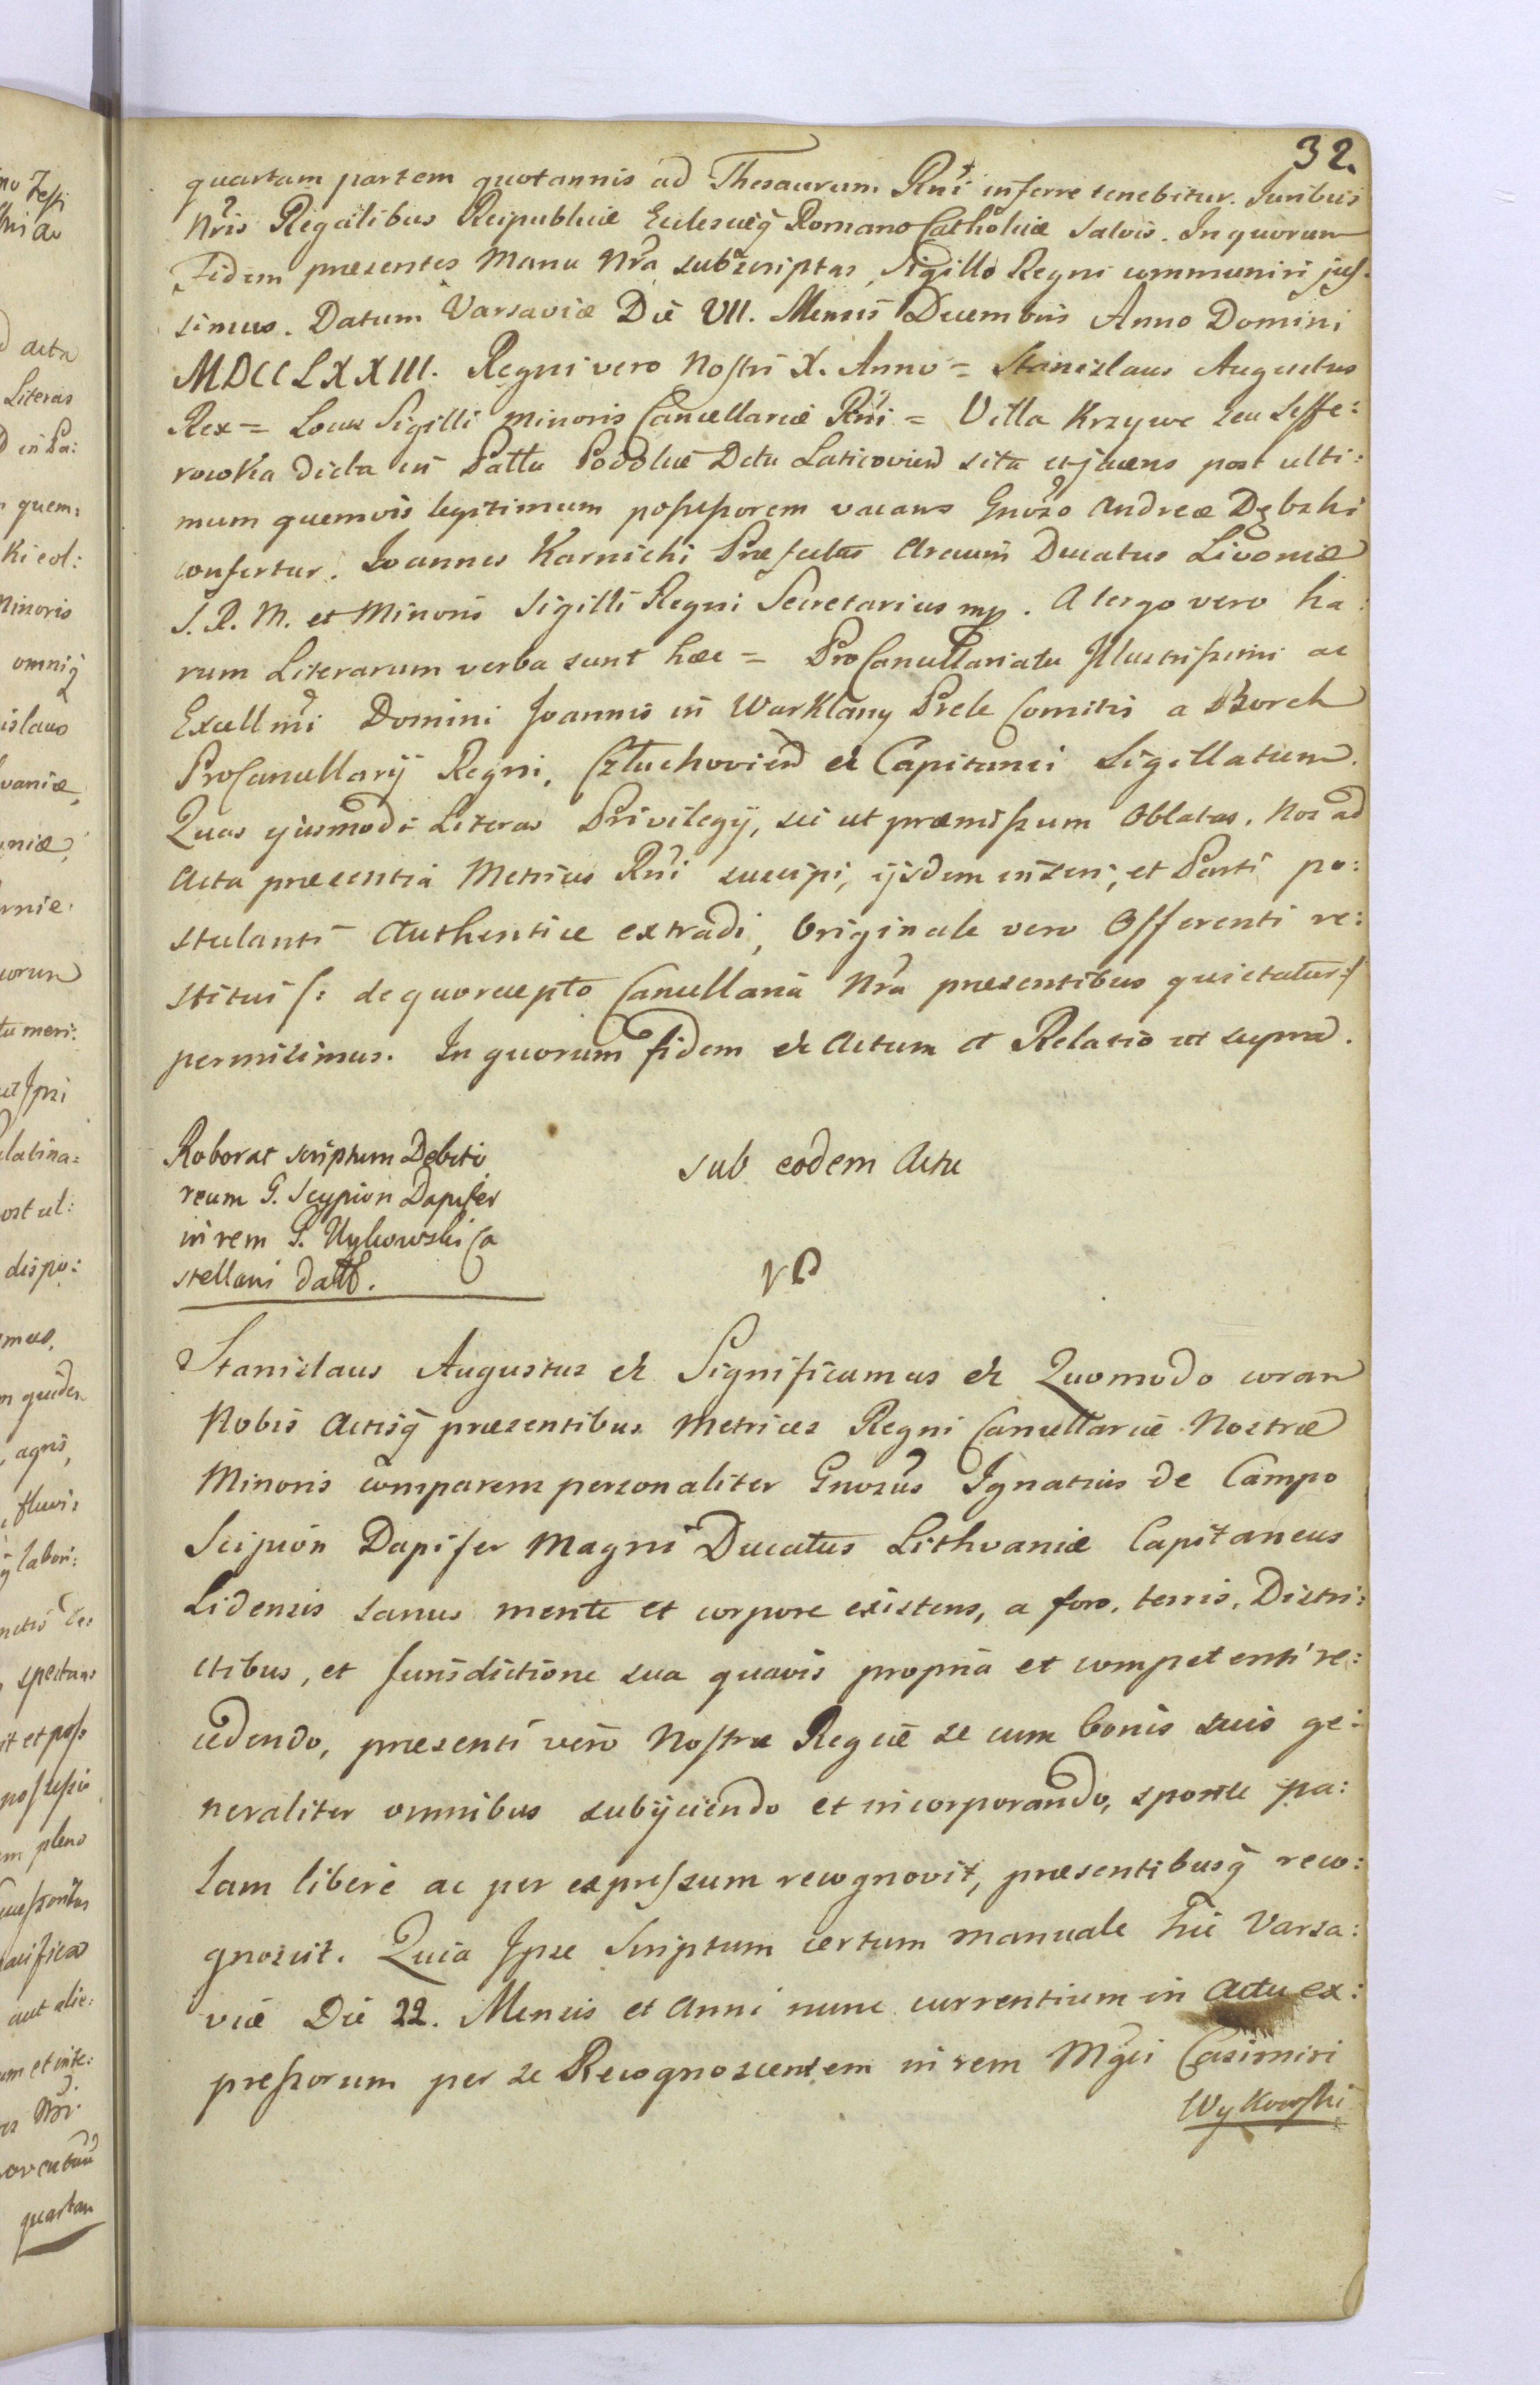 32.
quartam partem quotannis ad Thesaurum Rni inferre tenebitur. Juribus
Nris Regalibus Reipublicæ Ecclesiæq Romano Catholicæ salvis. In quorum
Fidem præsentes Manu Nra subscriptas, Sigillo Regni communiri jus-
simus. Datum Varsaviæ Die VII. Mensis Decembris Anno Domini
MDCCLXXIII. Regni vero Nostri X. Anno = Stanislaus Augustus
Rex = Locus Sigilli minoris Cancellariæ Rni = Villa Krzywe seu Seffe:
rowka dicta in Pattu Podoliæ Dctu Laticovien sita et jacens post ulti:
mum quemvis legitimum possessorem vacans Gnoso Andreæ Dębski
confertur. Joannes Karnicki Præfectus Arcium Ducatus Livoniæ
S. R. M. et Minoris Sigilli Regni Secretarius mp. A tergo vero ha:
rum Literarum verba sunt hæc = ProCancellariatu Illustrissimi ac
Excellmi Domini Joannis in Warklany Prele Comitis a Borch
ProCancellarij Regni, Człuchovien et Capitanei Sigillatum.
Quas ejusmodi Literas Privilegij, sic ut præmissum Oblatas. Nos ad
Acta præsentia Metrices Rni suscipi, ijsdem inseri, et Parti po:
stulanti Authentice extradi, Originale vero Offerenti re:
stitui /: de quo recepto Cancellaria Nra præsentibus quietatur :/
permisimus. In quorum fidem et Actum et Relatio ut supra.
Roborat scriptum Debito
reum G. Scypion Dapifer
in rem G. Wykowski Ca
stellani datt.
sub eodem Actu
Stanislaus Augustus et Significamus et Quomodo coram
Nobis Actisq præsentibus Metrices Regni Cancellariæ Nostræ
Minoris comparens personaliter Gnosus Ignatius de Campo
Scipion Dapifer Magni Ducatus Lithvaniæ Capitaneus
Lidensis sanus mente et corpore existens, a foro, terris, Distri:
ctibus, et Jurisdictione sua quavis propria et competenti re:
cedendo, præsenti vero Nostræ Regiæ se cum bonis suis ge:
neraliter omnibus subijciendo et incorporando, sponte pa:
lam libere ac per expressum recognovit, præsentibusq reco:
gnoscit. Quia Ipse Scriptum certum manuale hic Varsa:
viæ Die 22. Mensis et Anni nunc currentium in Actu ex:
pressorum per se Recognoscentem in rem Mgci Casimiri
Wykowski